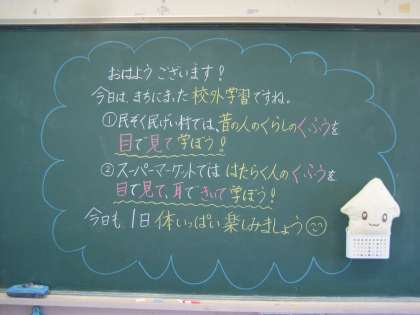 おはようございます!
今日は、まちにまった校外学習ですね。
①民ぞく民げい村では、昔の人のくらしのくふうを
目で見て学ぼう!
②スーパーマーケットでははたらく人のくふうを
目で見て、耳できいて学ぼう!
今日も1日体いっぱい楽しみましょう